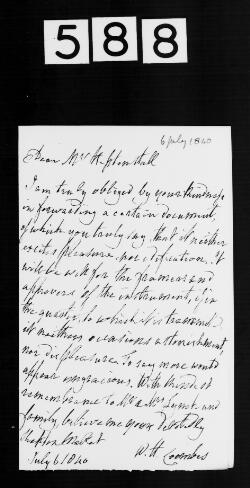 588
6 July 1840
Dear Mr Heptenstall
I am truly obliged by your kindness
in forwarding a certain document,
of which you truly say, that it neither
excites pleasure, nor edification. It
will be well for the framers and
approvers of the instrument, if in
the quarter to which it is transmd
it neither occasions astonishment,
nor displeasure. To say more would
appear ungracious. With kindest
remembrance to Mr & Mrs Lunt and
family, believe me yours devotedly
Shepton Mallet
W. H. Coombes
July 6 1840